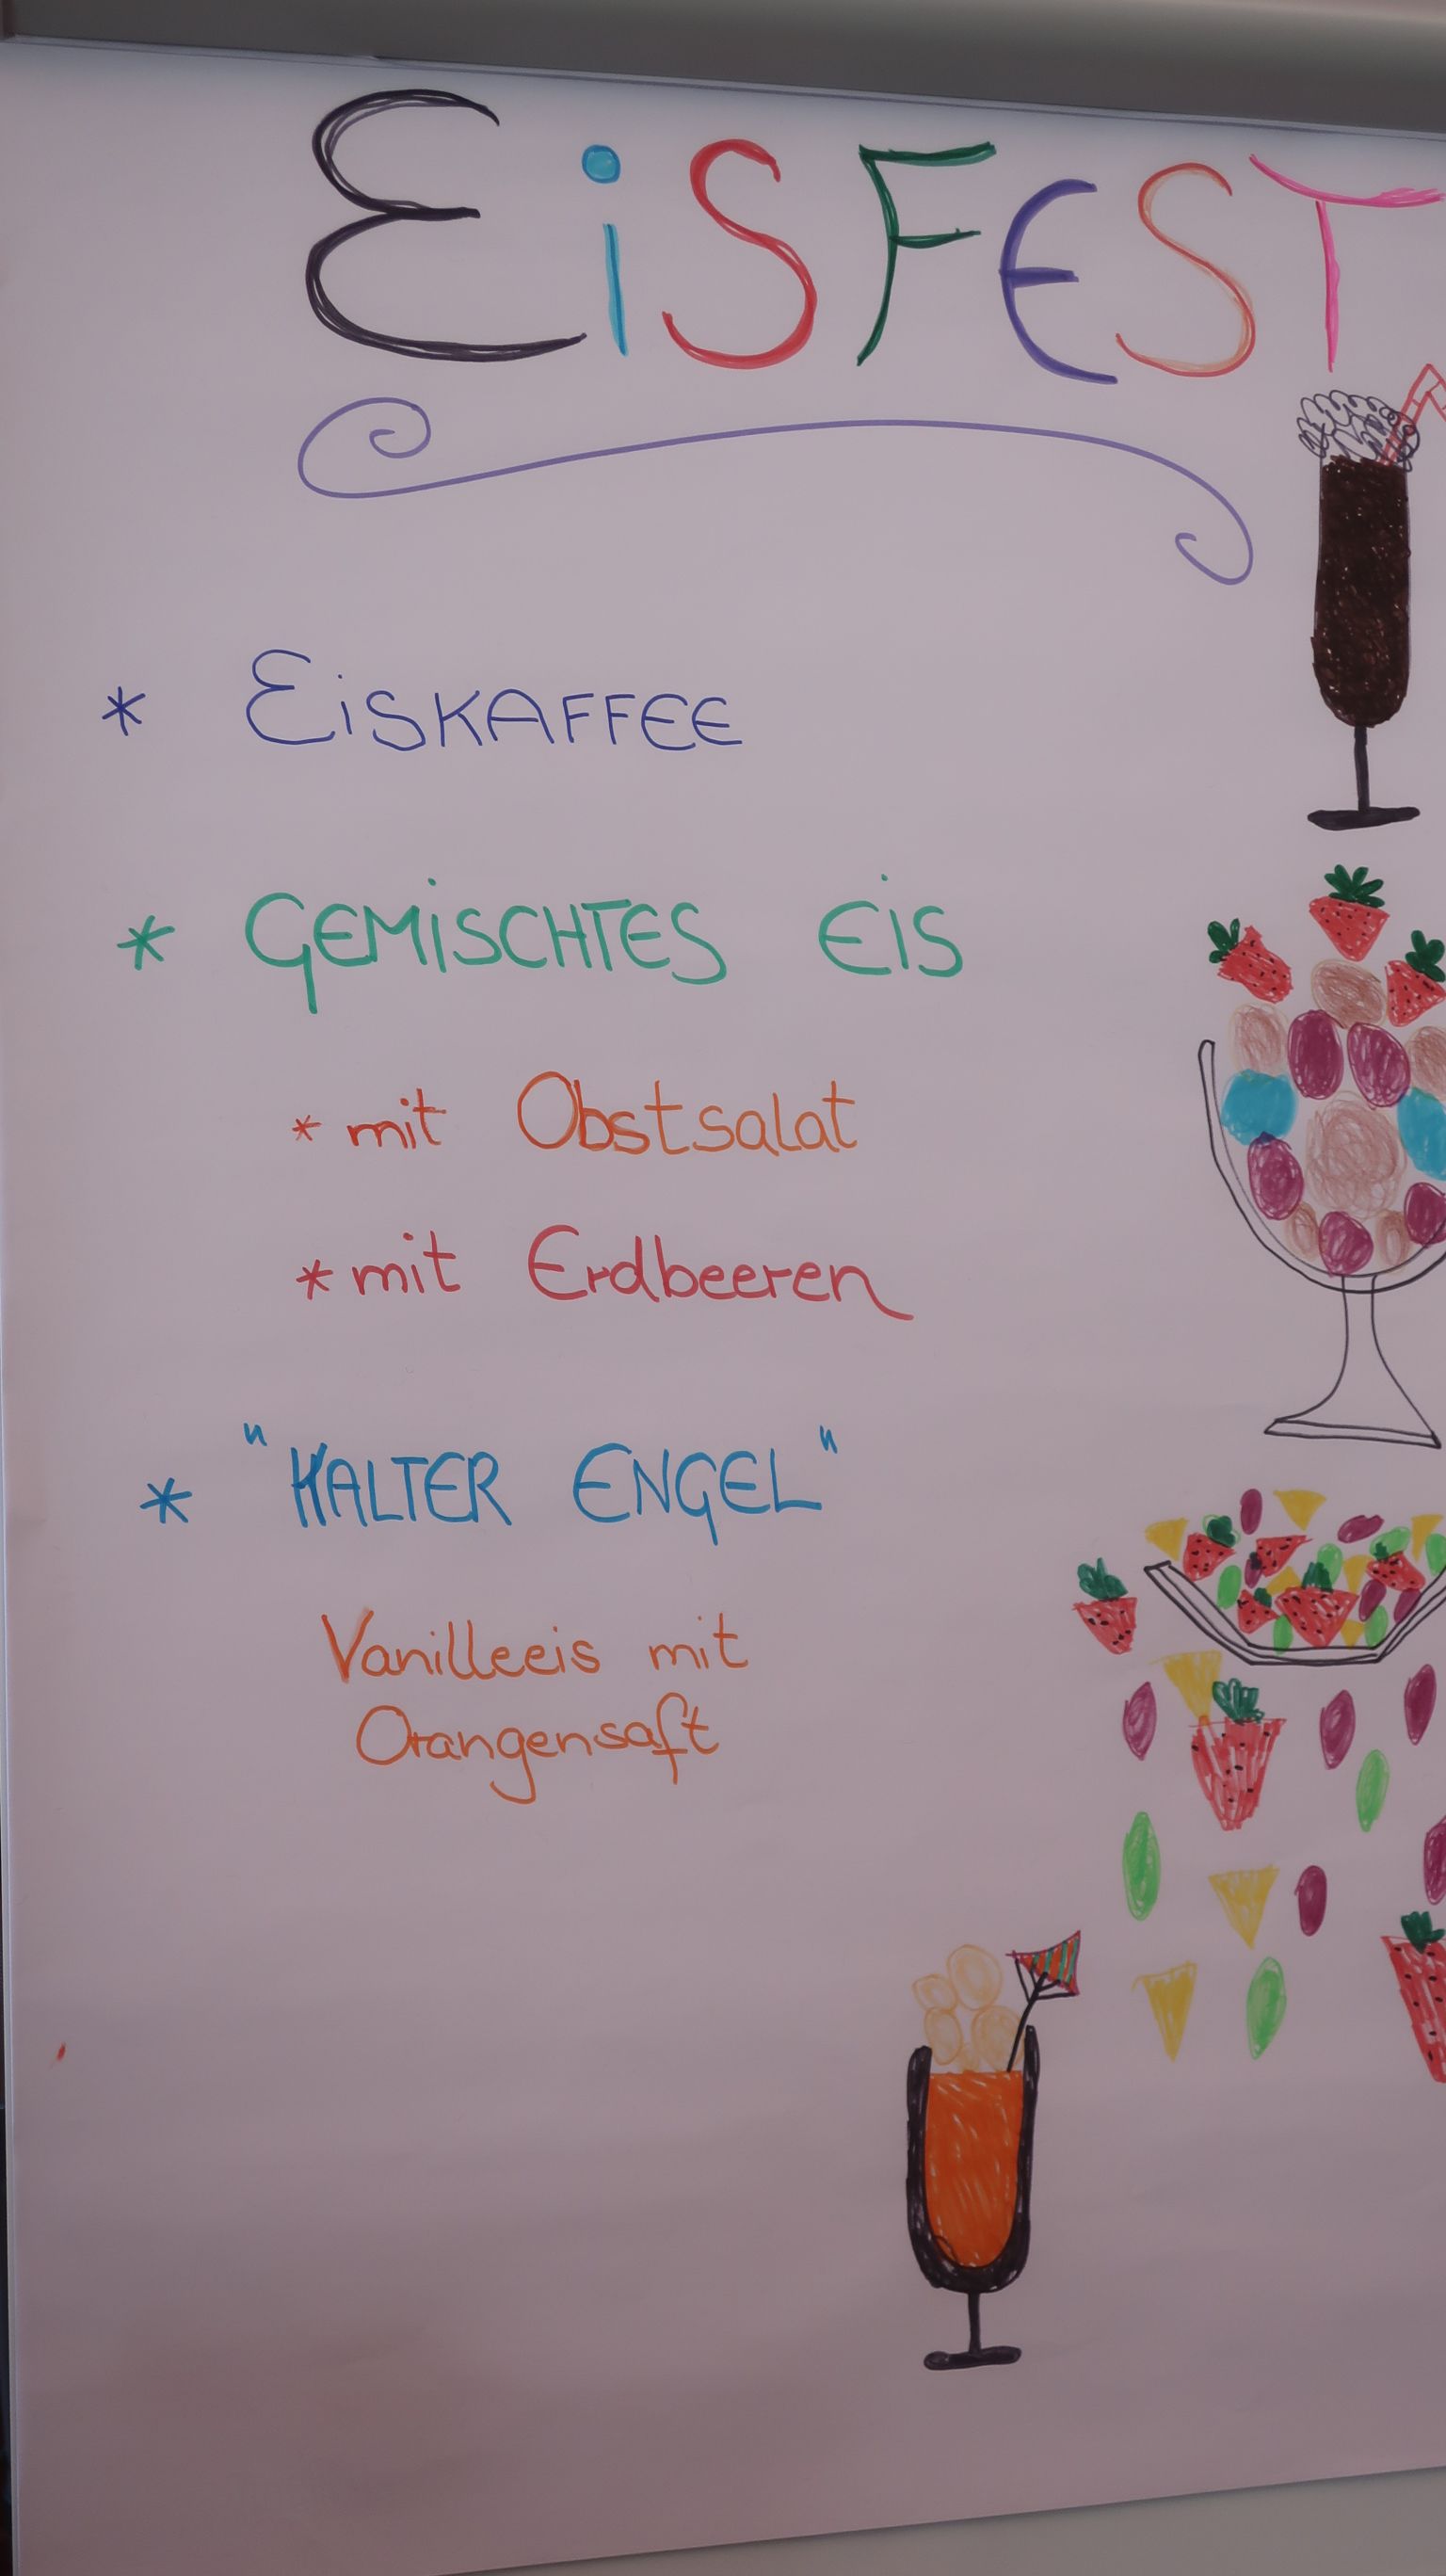 EiSFEST
* EiSKAFFEE
* GEMiSCHTES EiS
* mit Obstsalat
* mit Erdbeeren
* "KALTER ENGEL"
Vanilleeis mit
Orangensaft